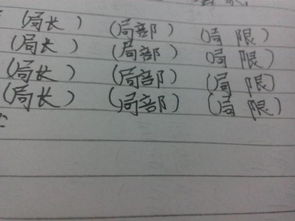 （局长）（局部）（局限）
（局长）（局部）（局限）
（局长）（局部）（局限）
（局长）（局部）（局限）